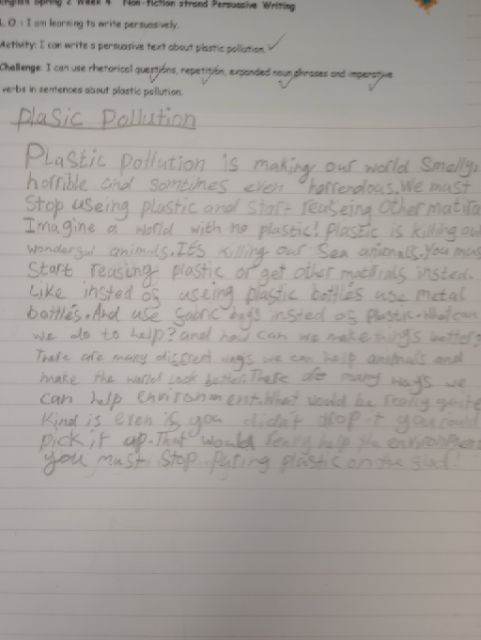 English Spring 2 Week 4 Non-fiction strand Persuasive Writing
L.O.: I am learning to write persuasively.
Activity: I can write a persuasive text about plastic pollution.
Challenge: I can use rhetorical questions, repetition, expanded noun phrases and imperative
verbs in sentences about plastic pollution.
Plasic Pollution
Plastic pollution is making our world Smelly,
horrible and somtimes even horrendous. We must
Stop useing plastic and start reuseing Other
Imagine a world with no plastic! Plastic is killing
wonderful animals. It's killing our Sea animals. You
Start reusing plastic or get other insted.
Like insted of useing plastic bottles use metal
bottles. And use insted of plastic. What can
we do to help? and how can we make things better?
There are many different ways we can help animals and
make the world look better. There are many ways we
can help environment. What would be really quite
Kind is even if you didn't drop it you could
pick it up. That would really help the
you must Stop puting plastic on the